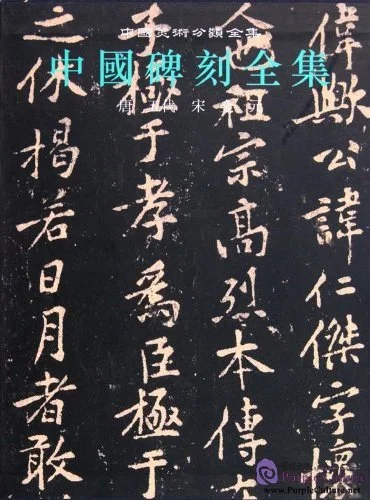 中國美術分類全集
中國碑刻全集
唐 五代 宋 金 元
偉歟公諱仁傑字懷
祖宗高烈本傳在
子極于孝爲臣極于
之休揭若日月者敢
www.PurpleCulture.net